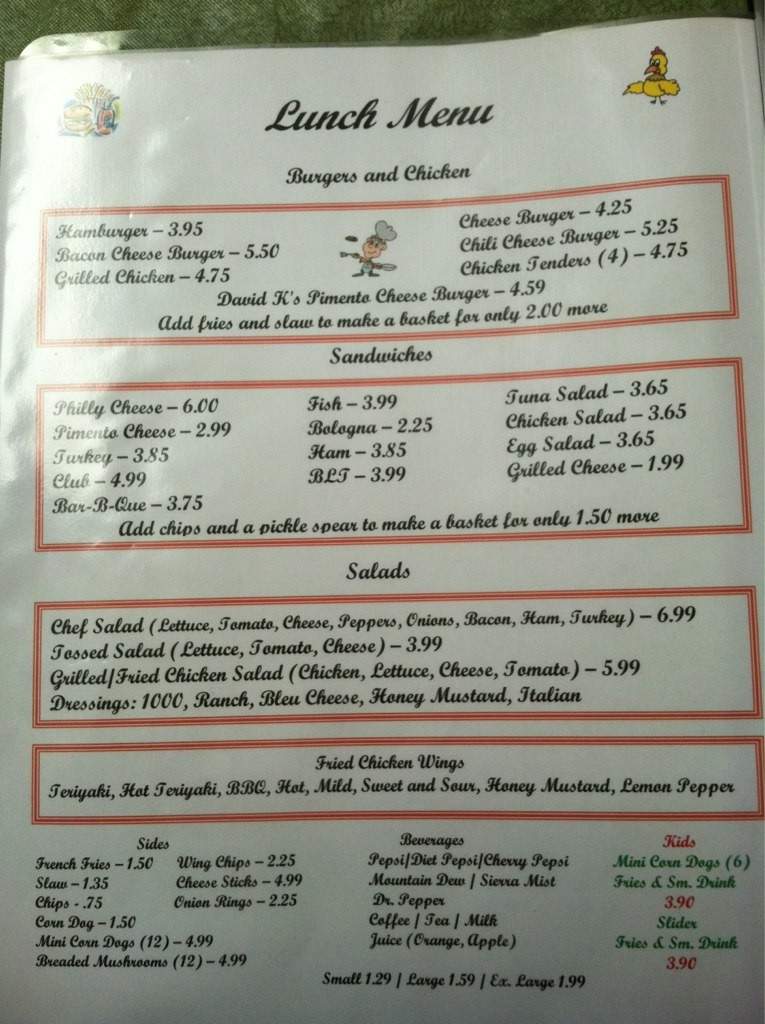 Lunch Menu
Burgers and Chicken
Hamburger – 3.95
Bacon Cheese Burger – 5.50
Grilled Chicken – 4.75
Cheese Burger – 4.25
Chili Cheese Burger – 5.25
Chicken Tenders (4) – 4.75
David K's Pimento Cheese Burger – 4.59
Add fries and slaw to make a basket for only 2.00 more
Sandwiches
Philly Cheese – 6.00
Pimento Cheese – 2.99
Turkey – 3.85
Club – 4.99
Bar-B-Que – 3.75
Fish – 3.99
Bologna – 2.25
Ham – 3.85
BLT – 3.99
Tuna Salad – 3.65
Chicken Salad – 3.65
Egg Salad – 3.65
Grilled Cheese – 1.99
Add chips and a pickle spear to make a basket for only 1.50 more
Salads
Chef Salad (Lettuce, Tomato, Cheese, Peppers, Onions, Bacon, Ham, Turkey) – 6.99
Tossed Salad (Lettuce, Tomato, Cheese) – 3.99
Grilled/Fried Chicken Salad (Chicken, Lettuce, Cheese, Tomato) – 5.99
Dressings: 1000, Ranch, Bleu Cheese, Honey Mustard, Italian
Fried Chicken Wings
Teriyaki, Hot Teriyaki, BBQ, Hot, Mild, Sweet and Sour, Honey Mustard, Lemon Pepper
Sides
French Fries – 1.50
Slaw – 1.35
Chips - .75
Corn Dog – 1.50
Mini Corn Dogs (12) – 4.99
Breaded Mushrooms (12) – 4.99
Wing Chips – 2.25
Cheese Sticks – 4.99
Onion Rings – 2.25
Beverages
Pepsi/Diet Pepsi/Cherry Pepsi
Mountain Dew / Sierra Mist
Dr. Pepper
Coffee / Tea / Milk
Juice (Orange, Apple)
Small 1.29 / Large 1.59 / Ex. Large 1.99
Kids
Mini Corn Dogs (6)
Fries & Sm. Drink
3.90
Slider
Fries & Sm. Drink
3.90